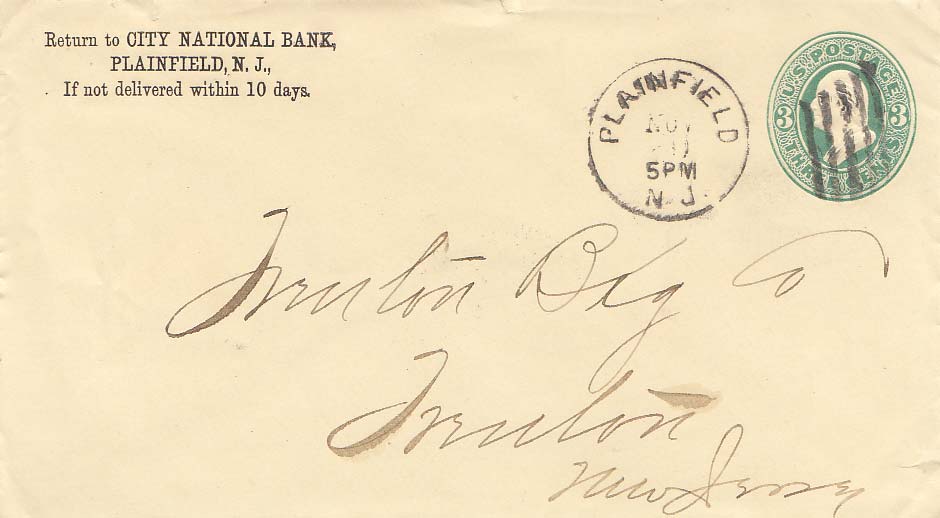 Return to CITY NATIONAL BANK,
PLAINFIELD, N. J.,
If not delivered within 10 days.
PLAINFIELD
NOV
5 PM
N. J.
U.S. POSTAGE
3 3
THREE CENTS
Trenton Bkg Co
Trenton
New Jersey